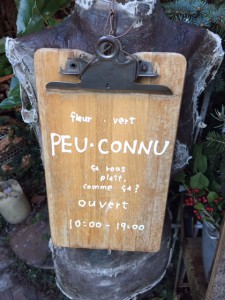 fleur . vert
PEU・CONNU
ça vous
plaît,
comme ça?
ouvert
10:00 - 19:00